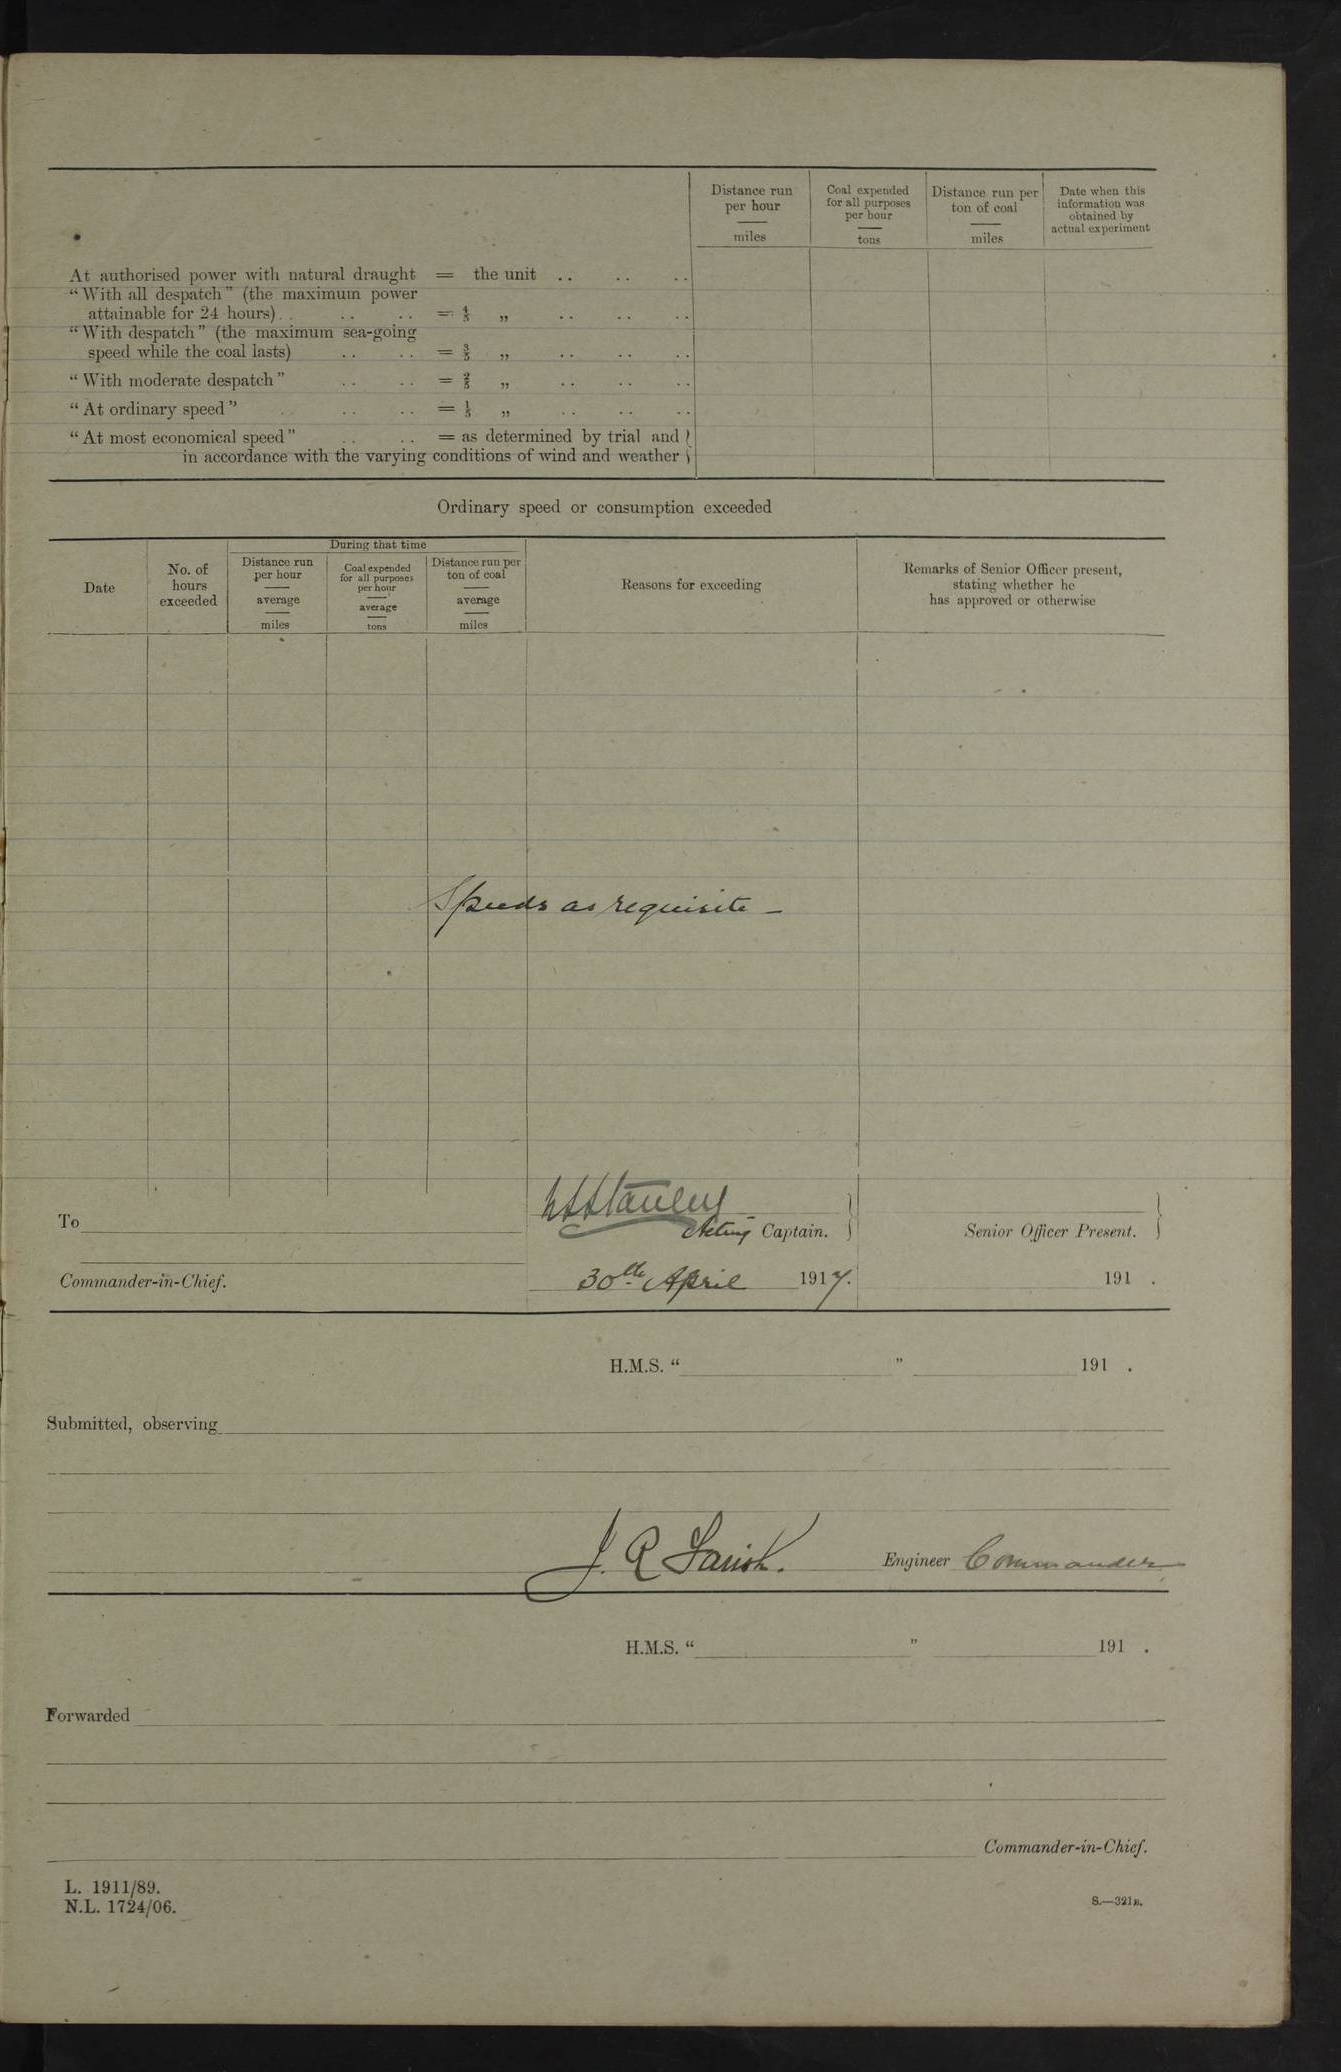 Distance run per hour miles
Coal expended for all purposes per hour tons
Distance run per ton of coal miles
Date when this information was obtained by actual experiment
At authorised power with natural draught = the unit .. .. ..
“With all despatch” (the maximum power
attainable for 24 hours) .. .. .. = 4/5 „ .. .. ..
“With despatch” (the maximum sea-going
speed while the coal lasts) .. .. = 3/5 „ .. .. ..
“With moderate despatch” .. .. = 2/5 „ .. .. ..
“At ordinary speed” .. .. = 1/5 „ .. .. ..
“At most economical speed” .. .. = as determined by trial and
in accordance with the varying conditions of wind and weather
Ordinary speed or consumption exceeded
Date
No. of hours exceeded
During that time
Distance run per hour average miles
Coal expended for all purposes per hour average tons
Distance run per ton of coal average miles
Reasons for exceeding
Remarks of Senior Officer present, stating whether he has approved or otherwise
Speeds as requisite –
Stanley
To
Acting Captain.
Senior Officer Present.
Commander-in-Chief.
30th April 1917.
191 .
H.M.S. “ ” 191 .
Submitted, observing
J. R. Engineer Commander
H.M.S. “ ” 191 .
Forwarded
Commander-in-Chief.
L. 1911/89.
N.L. 1724/06.
S.—321B.